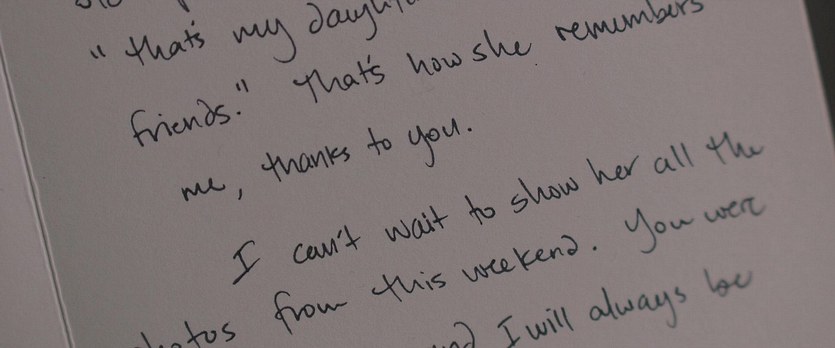 "that's my daught
friends." That's how she remembers
me, thanks to you.
I can't wait to show her all the
photos from this weekend. You were
and I will always be